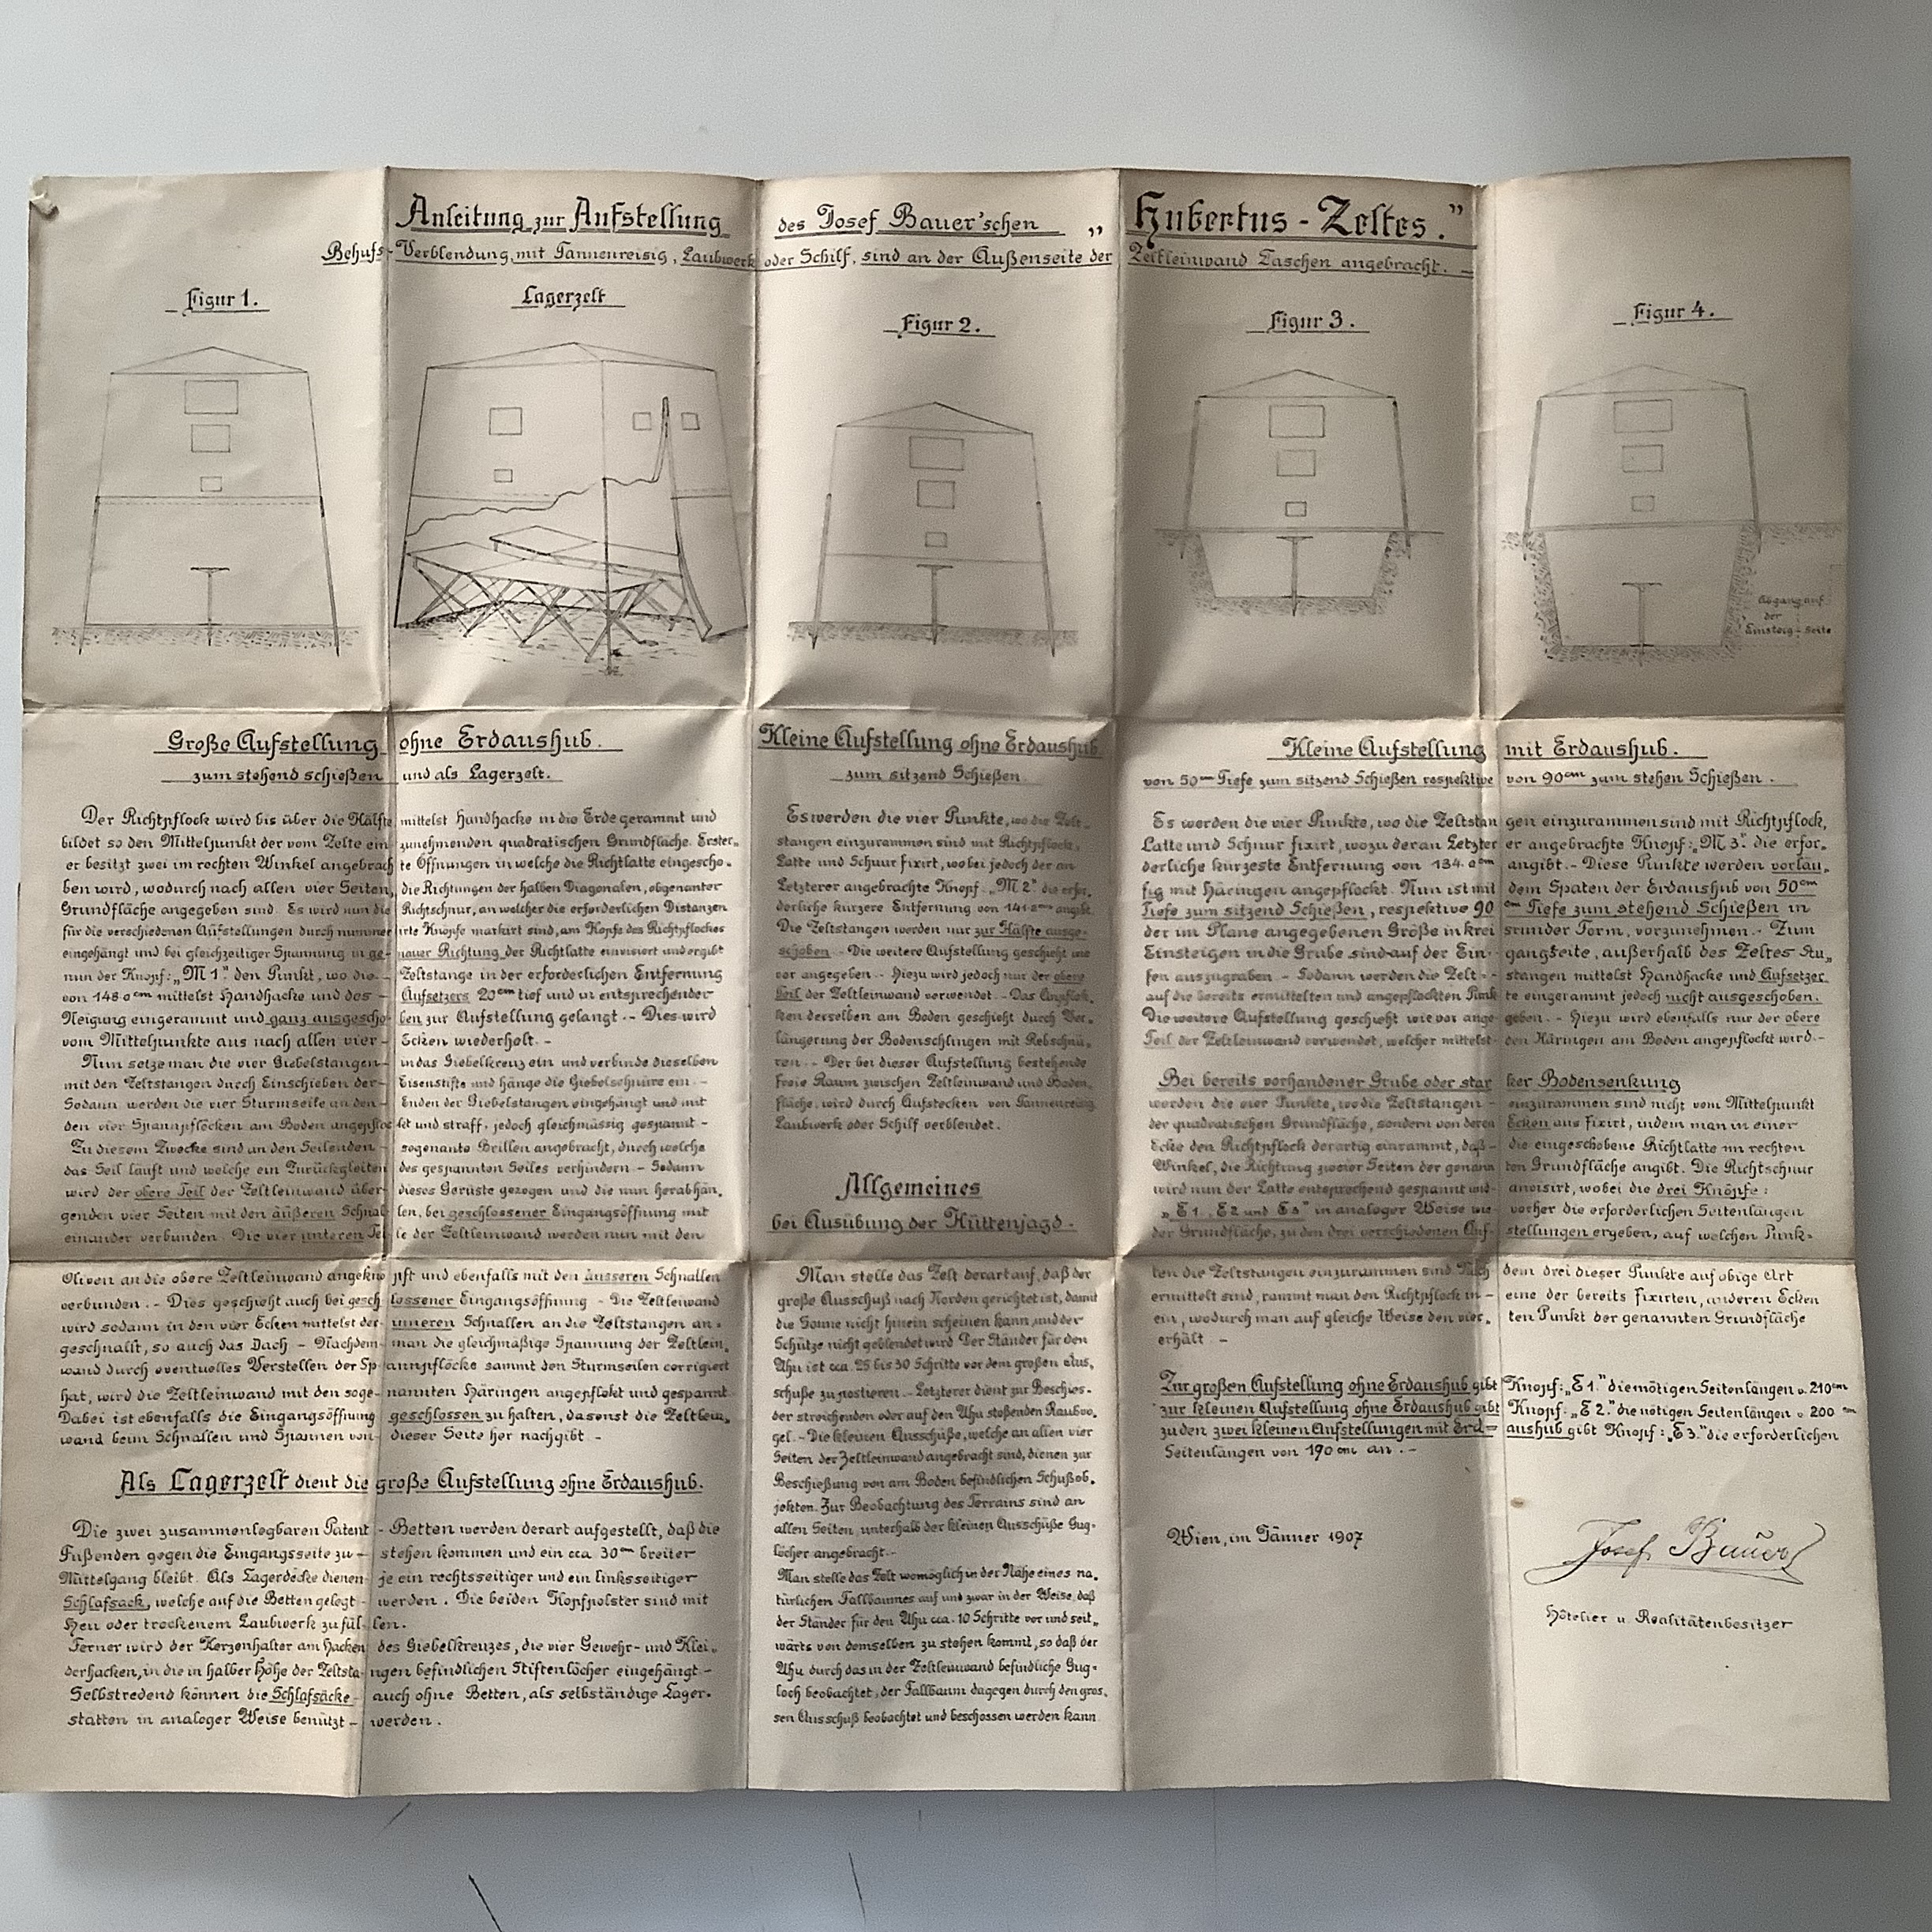 Anleitung zur Aufstellung des Josef Bauer'schen „Hubertus-Zeltes."
Behufs-Verblendung mit Tannenreisig, Laubwerk oder Schilf, sind an der Außenseite der Zeltleinwand Taschen angebracht. —
Figur 1.
Lagerzelt
Figur 2.
Figur 3.
Figur 4.
Abgang auf
der
Einsteig-Seite
Große Aufstellung ohne Erdaushub.
zum stehend schießen und als Lagerzelt.
Der Richtpflock wird bis über die Hälfte mittelst Handhacke in die Erde gerammt und
bildet so den Mittelpunkt der vom Zelte einzunehmenden quadratischen Grundfläche. Erster-
er besitzt zwei im rechten Winkel angebrachte Öffnungen in welche die Richtlatte eingescho-
ben wird, wodurch nach allen vier Seiten, die Richtungen der halben Diagonalen, obgenanter
Grundfläche angegeben sind. Es wird nun die Richtschnur, an welcher die erforderlichen Distanzen
für die verschiedenen Aufstellungen durch nummerirte Knöpfe markirt sind, am Kopfe des Richtpflockes
eingehängt und bei gleichzeitiger Spannung in genauer Richtung der Richtlatte einvisirt und ergibt
nun der Knopf: „M 1." den Punkt, wo die - Zeltstange in der erforderlichen Entfernung
von 148.0 cm mittelst Handhacke und des - Aufsetzers 20 cm tief und in entsprechender
Neigung eingerammt und ganz ausgeschoben zur Aufstellung gelangt. - Dies wird
vom Mittelpunkte aus nach allen vier - Ecken wiederholt. -
Nun setze man die vier Giebelstangen - in das Giebelkreuz ein und verbinde dieselben
mit den Zeltstangen durch Einschieben der - Eisenstifte und hänge die Giebelschnüre ein. -
Sodann werden die vier Sturmseile an den - Enden der Giebelstangen eingehängt und mit
den vier Spannpflöcken am Boden angepflockt und straff, jedoch gleichmässig gespannt -
Zu diesem Zwecke sind an den Seilenden - sogenante Brillen angebracht, durch welche
das Seil läuft und welche ein Zurückgleiten des gespannten Seiles verhindern - Sodann
wird der obere Teil der Zeltleinwand über- dieses Gerüste gezogen und die nun herabhän-
genden vier Seiten mit den äußeren Schnallen, bei geschlossener Eingangsöffnung mit
einander verbunden. Die vier unteren Teile der Zeltleinwand werden nun mit den
Oliven an die obere Zeltleinwand angeknüpft und ebenfalls mit den äusseren Schnallen
verbunden. - Dies geschieht auch bei geschlossener Eingangsöffnung - Die Zeltleinwand
wird sodann in den vier Ecken mittelst der - inneren Schnallen an die Zeltstangen an-
geschnallt, so auch das Dach - Nachdem - man die gleichmäßige Spannung der Zeltlein-
wand durch eventuelles Verstellen der Spannpflöcke sammt den Sturmseilen corrigiert
hat, wird die Zeltleinwand mit den soge- nannten Häringen angepflokt und gespannt.
Dabei ist ebenfalls die Eingangsöffnung geschlossen zu halten, da sonst die Zeltlein-
wand beim Schnallen und Spannen von - dieser Seite her nachgibt -
Als Lagerzelt dient die große Aufstellung ohne Erdaushub.
Die zwei zusammenlegbaren Patent - Betten werden derart aufgestellt, daß die
Fußenden gegen die Eingangsseite zu - stehen kommen und ein cca 30 cm breiter
Mittelgang bleibt. Als Lagerdecke dienen - je ein rechtsseitiger und ein linksseitiger
Schlafsack, welche auf die Betten gelegt - werden. Die beiden Kopfpolster sind mit
Heu oder trockenem Laubwerk zu füllen.
Ferner wird der Kerzenhalter am Hacken des Giebelkreuzes, die vier Gewehr- und Klei-
derhacken, in die in halber Höhe der Zeltstangen befindlichen Stiftenlöcher eingehängt -
Selbstredend können die Schlafsäcke - auch ohne Betten, als selbständige Lager-
stätten in analoger Weise benützt - werden.
Kleine Aufstellung ohne Erdaushub.
zum sitzend Schießen
Es werden die vier Punkte, wo die Zelt-
stangen einzurammen sind mit Richtpflock,
Latte und Schnur fixirt, wobei jedoch der an
Letzterer angebrachte Knopf: „M 2." die erfor-
derliche kürzere Entfernung von 141.2 cm angibt.
Die Zeltstangen werden nur zur Hälfte ausge-
schoben - Die weitere Aufstellung geschieht wie
vor angegeben - Hiezu wird jedoch nur der obere
Teil der Zeltleinwand verwendet. - Das Anpflok-
ken derselben am Boden geschieht durch Ver-
längerung der Bodenschlingen mit Rebschnü-
ren. - Der bei dieser Aufstellung bestehende
freie Raum zwischen Zeltleinwand und Boden-
fläche, wird durch Aufstecken von Tannenreisig
Laubwerk oder Schilf verblendet.
Allgemeines
bei Ausübung der Hüttenjagd.
Man stelle das Zelt derart auf, daß der
große Ausschuß nach Norden gerichtet ist, damit
die Sonne nicht hinein scheinen kann, und der
Schütze nicht geblendet wird. Der Ständer für den
Uhu ist cca. 25 bis 30 Schritte vor dem großen Aus-
schuße zu postieren - Letzterer dient zur Beschies-
der streichenden oder auf den Uhu stoßenden Raubvo-
gel. - Die kleinen Ausschüße, welche an allen vier
Seiten der Zeltleinwand angebracht sind, dienen zur
Beschießung von am Boden befindlichen Schußob-
jekten. Zur Beobachtung des Terrains sind an
allen Seiten, unterhalb der kleinen Ausschüße Gug-
löcher angebracht. -
Man stelle das Zelt womöglich in der Nähe eines na-
türlichen Fallbaumes auf und zwar in der Weise, daß
der Ständer für den Uhu cca. 10 Schritte vor und seit-
wärts von demselben zu stehen kommt, so daß der
Uhu durch das in der Zeltleinwand befindliche Gug-
loch beobachtet, der Fallbaum dagegen durch den gros-
sen Ausschuß beobachtet und beschossen werden kann
Kleine Aufstellung mit Erdaushub.
von 50 cm Tiefe zum sitzend Schießen respektive von 90 cm zum stehen Schießen.
Es werden die vier Punkte, wo die Zeltstangen einzurammen sind mit Richtpflock,
Latte und Schnur fixirt, wozu der an Letzterer angebrachte Knopf: „M 3." die erfor-
derliche kürzeste Entfernung von 134.0 cm angibt. - Diese Punkte werden vorläu-
fig mit Häringen angepflockt. Nun ist mit dem Spaten der Erdaushub von 50 cm
Tiefe zum sitzend Schießen, respektive 90 cm Tiefe zum stehend Schießen in
der im Plane angegebenen Größe in kreisrunder Form, vorzunehmen. - Zum
Einsteigen in die Grube sind auf der Ein- gangseite, außerhalb des Zeltes Stu-
fen auszugraben. - Sodann werden die Zelt - stangen mittelst Handhacke und Aufsetzer
auf die bereits ermittelten und angepflockten Punkte eingerammt jedoch nicht ausgeschoben.
Die weitere Aufstellung geschieht wie vor angegeben. - Hiezu wird ebenfalls nur der obere
Teil der Zeltleinwand verwendet, welcher mittelst - den Häringen am Boden angepflockt wird. -
Bei bereits vorhandener Grube oder starker Bodensenkung
werden die vier Punkte, wo die Zeltstangen - einzurammen sind nicht vom Mittelpunkt
der quadratischen Grundfläche, sondern von deren Ecken aus fixirt, indem man in einer
Ecke den Richtpflock derartig einrammt, daß - die eingeschobene Richtlatte im rechten
Winkel, die Richtung zweier Seiten der genannten Grundfläche angibt. Die Richtschnur
wird nun der Latte entsprechend gespannt und anvisirt, wobei die drei Knöpfe:
„E 1., E 2 und E 3" in analoger Weise wie vorher die erforderlichen Seitenlängen
der Grundfläche, zu den drei verschiedenen Aufstellungen ergeben, auf welchen Punk-
ten die Zeltstangen einzurammen sind. Nachdem drei dieser Punkte auf obige Art
ermittelt sind, rammt man den Richtpflock in - eine der bereits fixirten, anderen Ecken
ein, wodurch man auf gleiche Weise den vierten Punkt der genannten Grundfläche
erhält. -
Zur großen Aufstellung ohne Erdaushub gibt Knopf: „E 1." die nötigen Seitenlängen v. 210 cm
zur kleinen Aufstellung ohne Erdaushub gibt Knopf: „E 2." die nötigen Seitenlängen v. 200 cm
zu den zwei kleinen Aufstellungen mit Erdaushub gibt Knopf: „E 3." die erforderlichen
Seitenlängen von 190 cm an. -
Wien, im Jänner 1907
Josef Bauer
Hôtelier u. Realitätenbesitzer